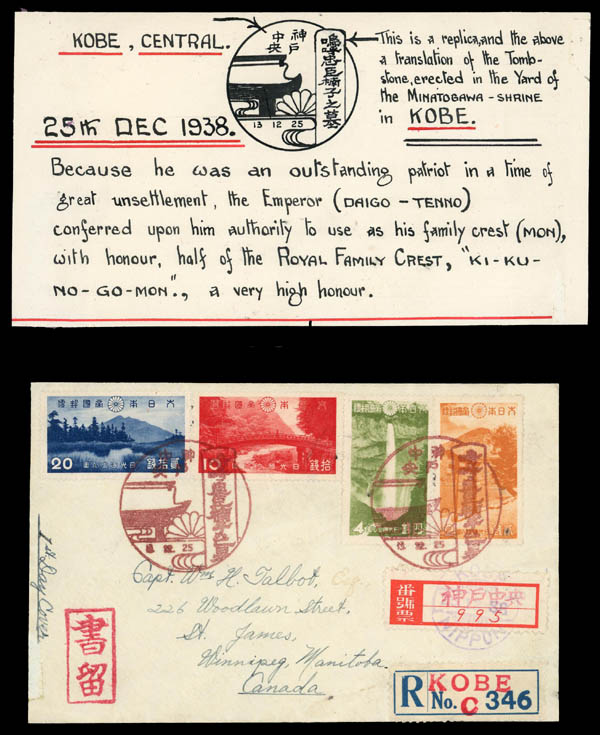 KOBE, CENTRAL.
神戸
中央
嗚呼忠臣楠子之墓
13 12 25
This is a replica, and the above
a translation of the Tomb-
stone, erected in the Yard of
the MINATOGAWA-SHRINE
in KOBE.
25th DEC 1938.
Because he was an outstanding patriot in a time of
great unsettlement, the Emperor (DAIGO-TENNO)
conferred upon him authority to use as his family crest (MON),
with honour, half of the ROYAL FAMILY CREST, "KI-KU-
NO-GO-MON"., a very high honour.
便郵國帝本日大
20
錢貳拾
便郵國帝本日大
10
錢拾
便郵國帝本日大
4
錢四
便郵國帝本日大
神戸
中央
嗚呼忠臣楠子之墓
13. 12. 25
神戸
中央
嗚呼忠臣楠子之墓
13. 12. 25
1st Day Cover
Capt. Wm H. Talbot,
226 Woodlawn Street,
St. James,
Winnipeg, Manitoba
Canada
書留
番號票
神戸中央
993
NIPPON
R KOBE
No. C 346